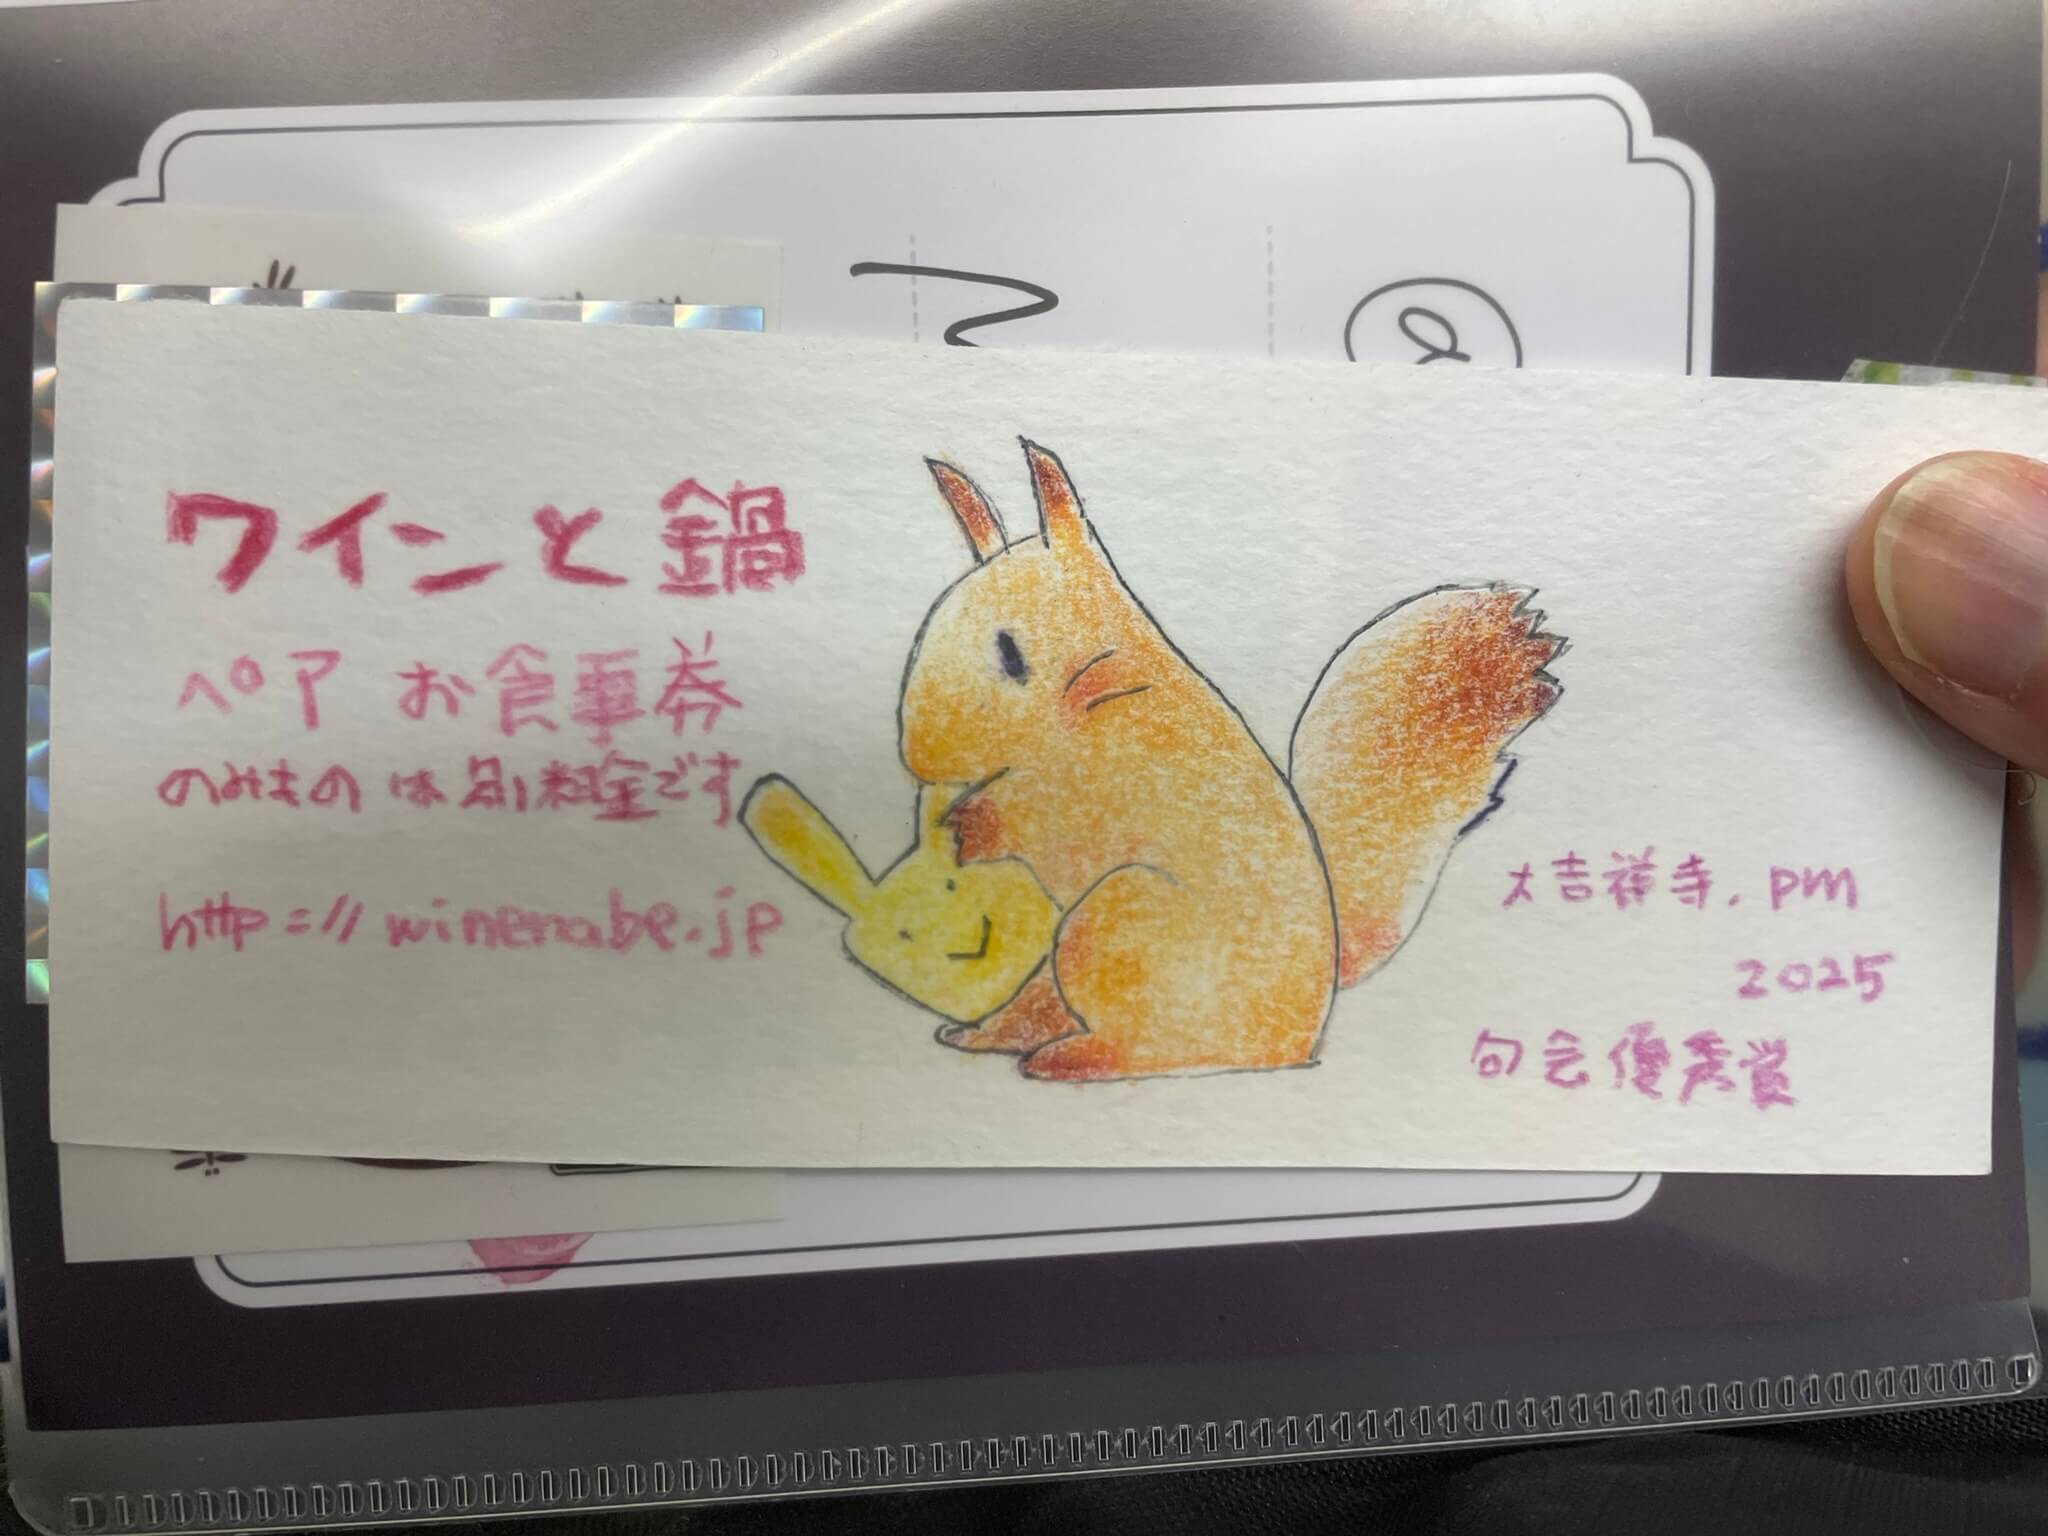 ワインと鍋
ペア お食事券
のみものは別料金です
http://winenabe.jp
大吉祥寺.pm
2025
句会優秀賞